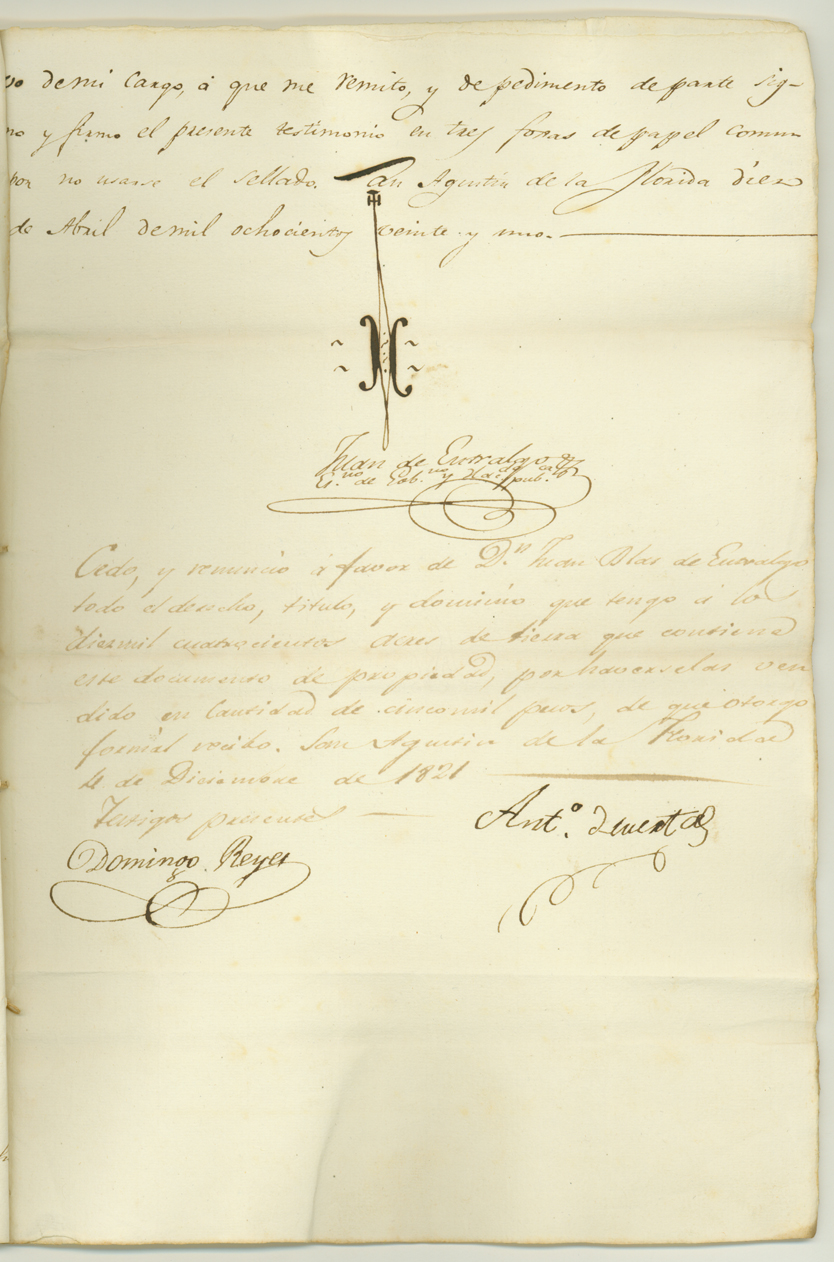 vo de mi Cargo, á que me remito, y de pedimento de parte sig-
no y firmo el presente testimonio en tres foxas de papel comun
por no usarse el sellado. San Agustin de la Florida diez
de Abril de mil ochocientos veinte y uno.
Juan de Entralgo
Es.no de Gob.no y Hac.da pub.ca
Cedo, y renuncio á favor de D.n Juan Blas de Entralgo
todo el derecho, titulo, y dominio que tengo á los
diezmil cuatrocientos acres de tierra que contiene
este documento de propiedad, por haverselas ven
dido en Cantidad de cincomil pesos, de que otorgo
formal recibo. San Agustin de la Florida
4 de Diciembre de 1821
Testigos presentes
Ant.o Huertas
Domingo Reyes